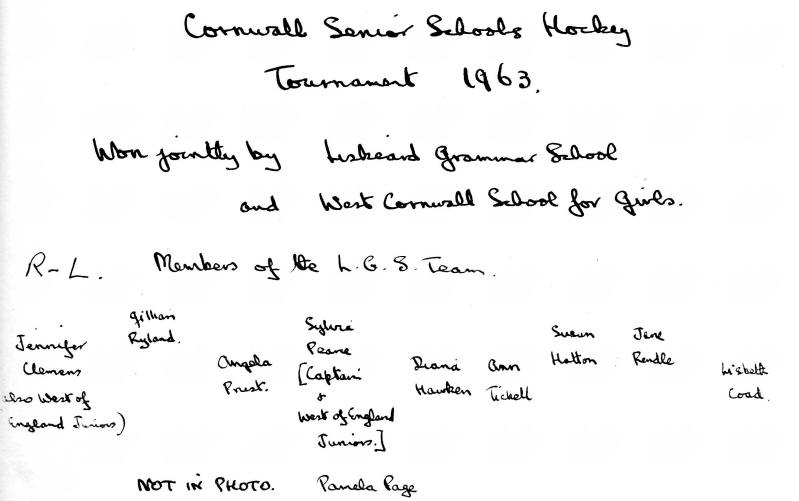 Cornwall Senior Schools Hockey
Tournament 1963.
Won jointly by Liskeard Grammar School
and West Cornwall School for Girls.
R-L. Members of the L.G.S. Team.
Jennifer
Clemens
also West of
England Juniors)
Gillian
Ryland.
Angela
Prest.
Sylvia
Pearce
[Captain
&
West of England
Juniors.]
Diana
Hawken
Ann
Tickell
Susan
Hatton
Jane
Rendle
Lisbeth
Coad.
NOT IN PHOTO. Pamela Page